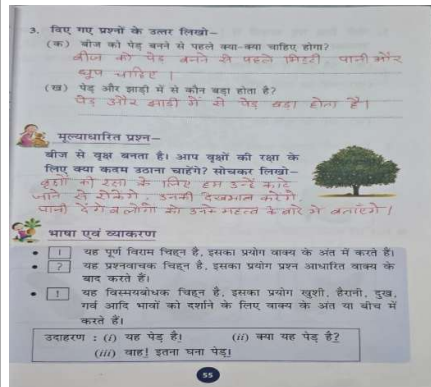 3. दिए गए प्रश्नों के उत्तर लिखो–
(क) बीज को पेड़ बनने से पहले क्या-क्या चाहिए होगा?
बीज को पेड़ बनने से पहले मिट्टी, पानी और
धूप चाहिए ।
(ख) पेड़ और झाड़ी में से कौन बड़ा होता है?
पेड़ और झाड़ी में से पेड़ बड़ा होता है।
मूल्याधारित प्रश्न–
बीज से वृक्ष बनता है। आप वृक्षों की रक्षा के
लिए क्या कदम उठाना चाहेंगे? सोचकर लिखो–
वृक्षों की रक्षा के लिए हम उन्हें काटे
जाने से रोकेंगे, उनकी देखभाल करेंगे,
पानी देंगे व लोगों को उनके महत्व के बारे में बताएंगे।
भाषा एवं व्याकरण
• । यह पूर्ण विराम चिह्न है, इसका प्रयोग वाक्य के अंत में करते हैं।
• ? यह प्रश्नवाचक चिह्न है, इसका प्रयोग प्रश्न आधारित वाक्य के
बाद करते हैं।
• ! यह विस्मयबोधक चिह्न है, इसका प्रयोग खुशी, हैरानी, दुख,
गर्व आदि भावों को दर्शाने के लिए वाक्य के अंत या बीच में
करते हैं।
उदाहरण : (i) यह पेड़ है। (ii) क्या यह पेड़ है?
(iii) वाह! इतना घना पेड़!
55